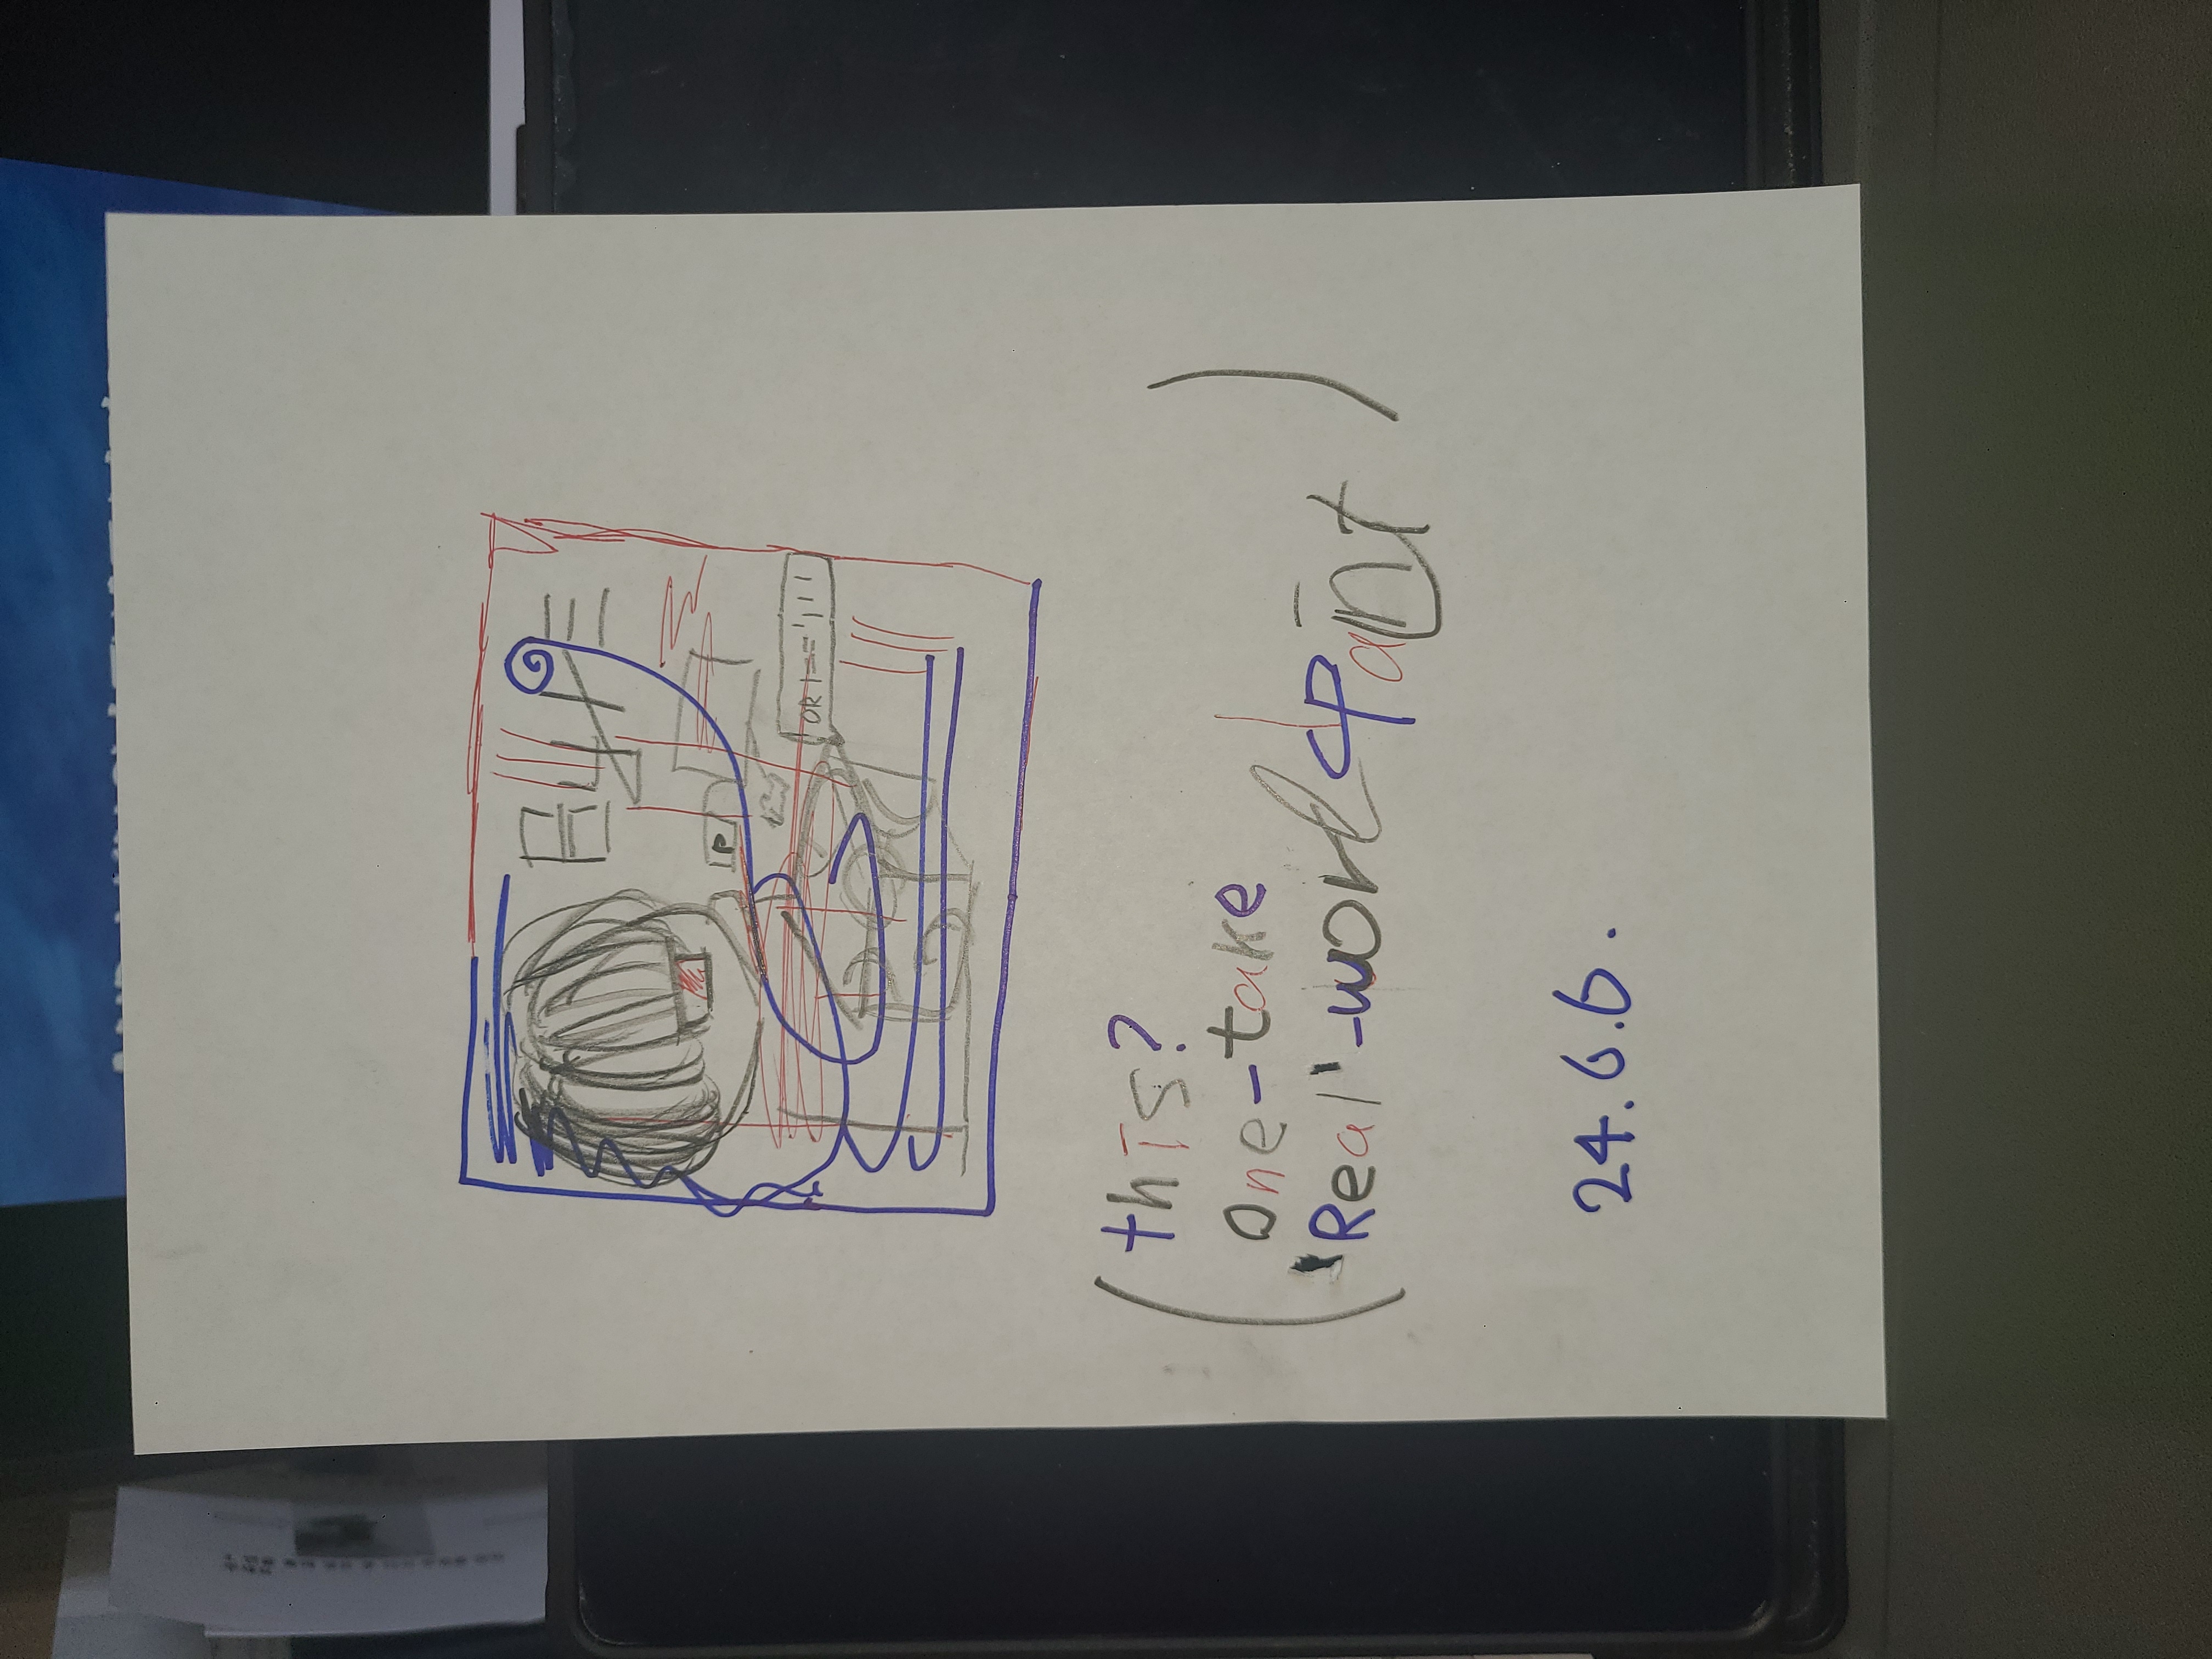 P
OR 1=='111
this?
One-take
'Real'-world paint
24.6.6.